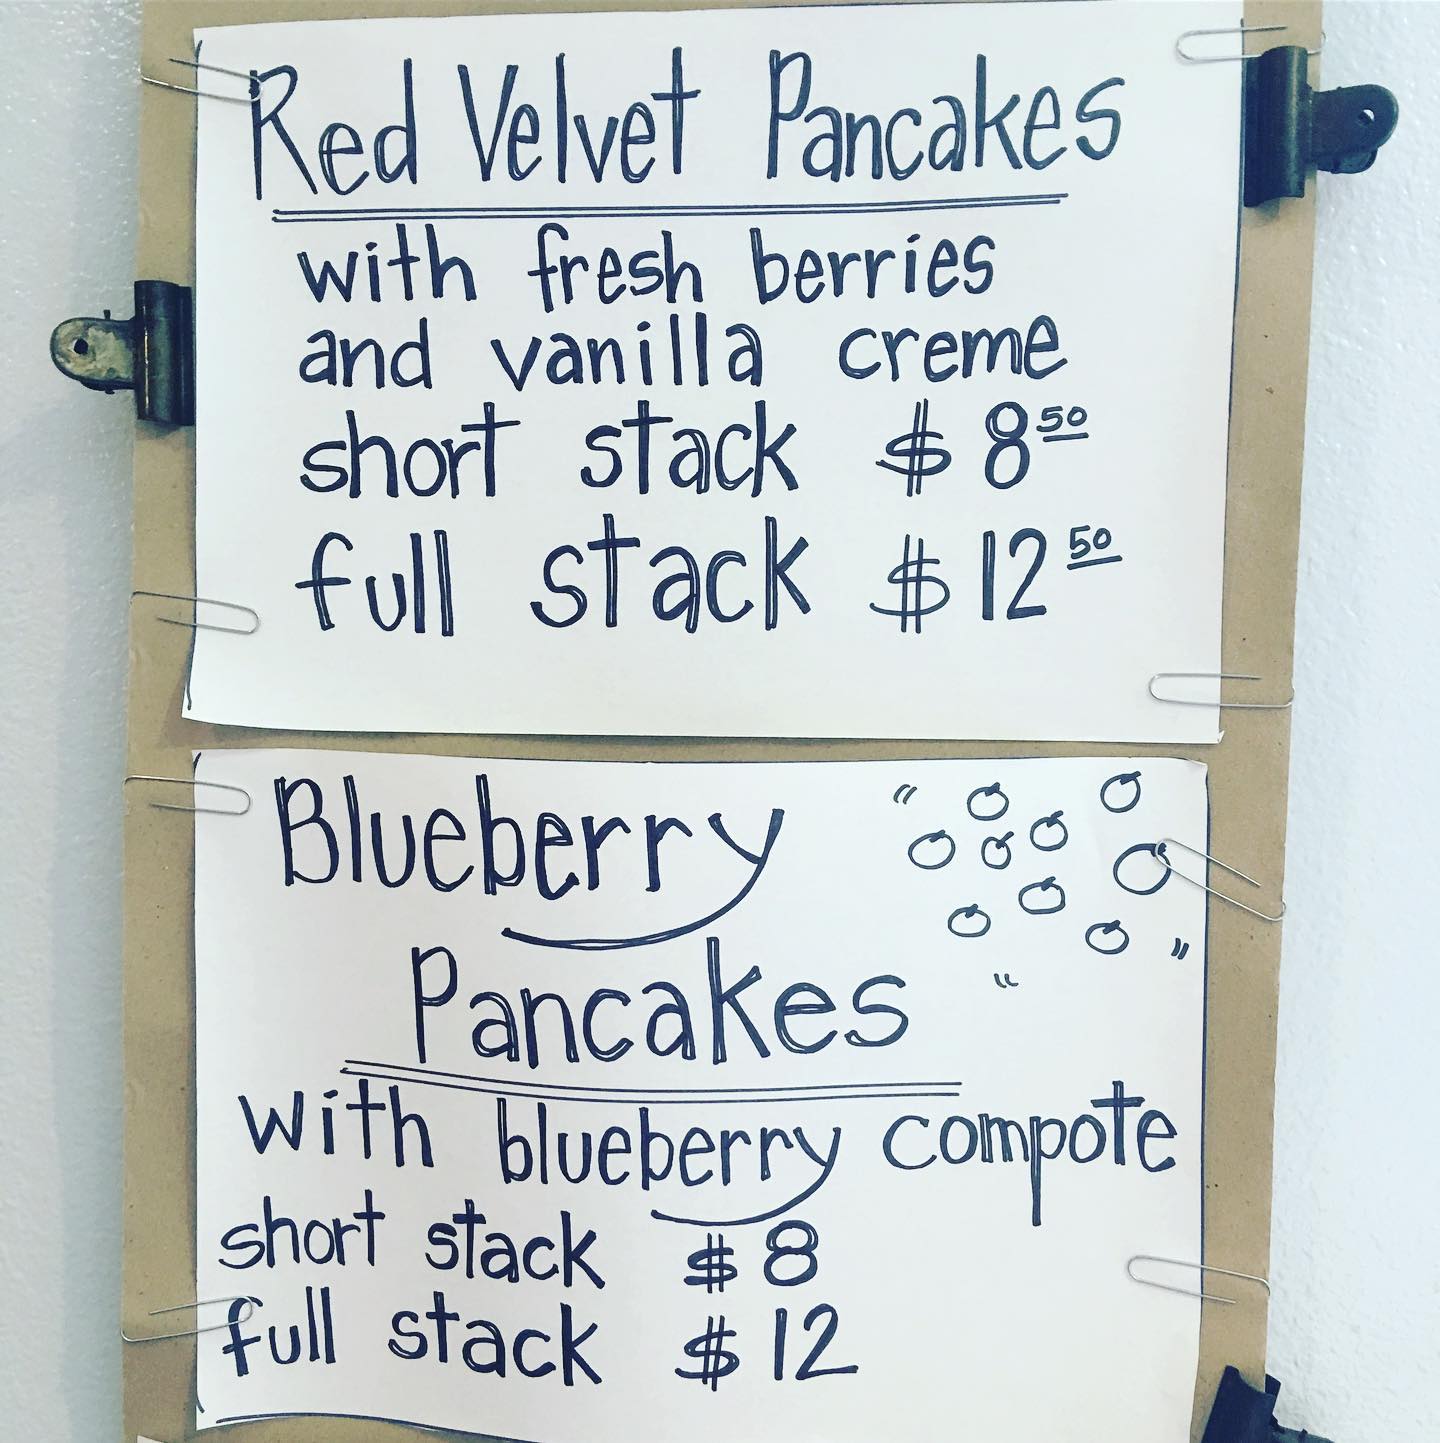 Red Velvet Pancakes
with fresh berries
and vanilla creme
short stack $ 8 50
full stack $ 12 50
Blueberry
Pancakes
with blueberry compote
short stack $ 8
full stack $ 12